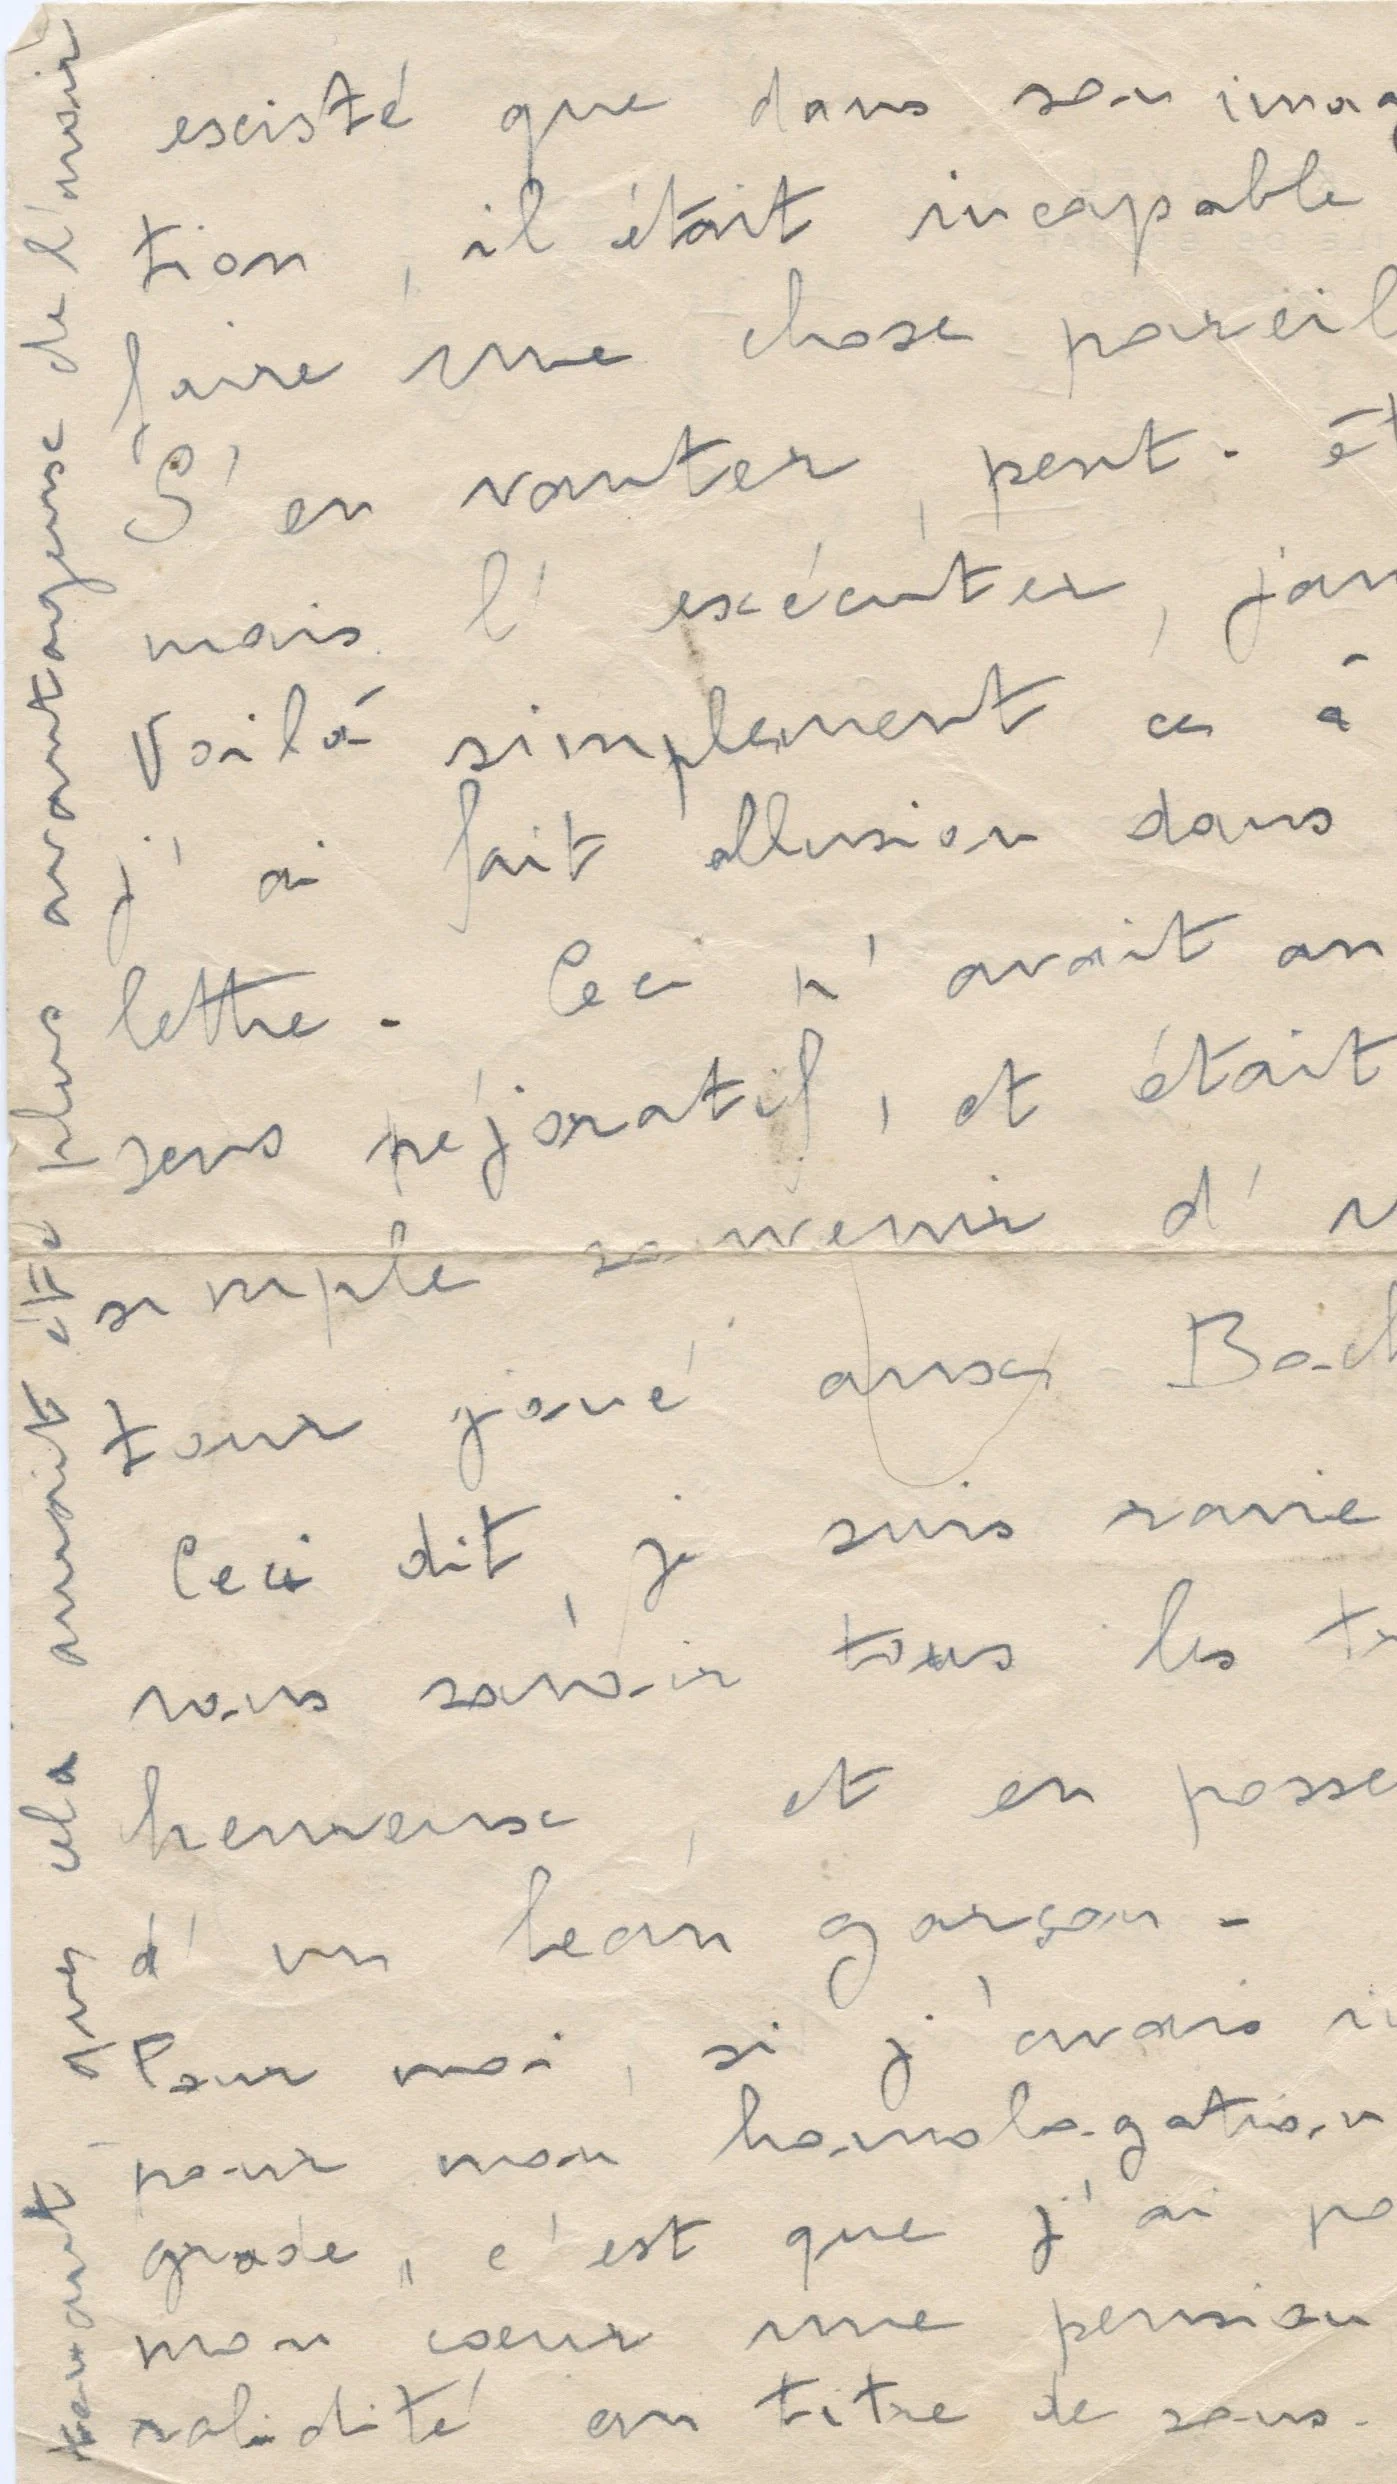 existé que dans son imag
tion, il était incapable
faire une chose pareil
S'en vanter, peut-êt
mais l'exécuter, jam
Voilà simplement ce à
j'ai fait allusion dans
lettre. Ceci n'avait au
sens péjoratif, et était
simple souvenir d'u
tour joué aux Boch
Ceci dit, je suis ravie
vous savoir tous les tr
heureuse, et en posse
d'un beau garçon.
Pour moi, si j'avais in
pour mon homologation
grade, c'est que j'ai po
mon coeur une pension
validité au titre de sous.
tenant que cela aurait été plus avantageuse de l'avoir